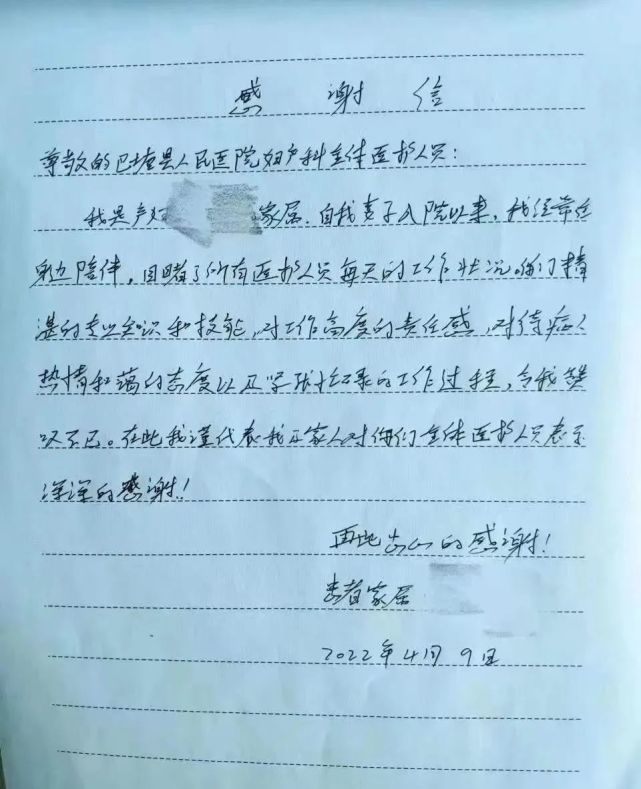 感谢信
尊敬的巴塘县人民医院妇产科全体医护人员:
我是产妇家属.自我妻子入院以来,我经常在
身边陪伴,目睹了所有医护人员每天的工作状况。你们精
湛的专业知识和技能,对工作高度的责任感,对待病人
热情和蔼的态度以及紧张忙碌的工作过程,令我赞
叹不已。在此我谨代表我及家人对你们全体医护人员表示
深深的感谢!
再此衷心的感谢!
患者家属
2022年4月9日